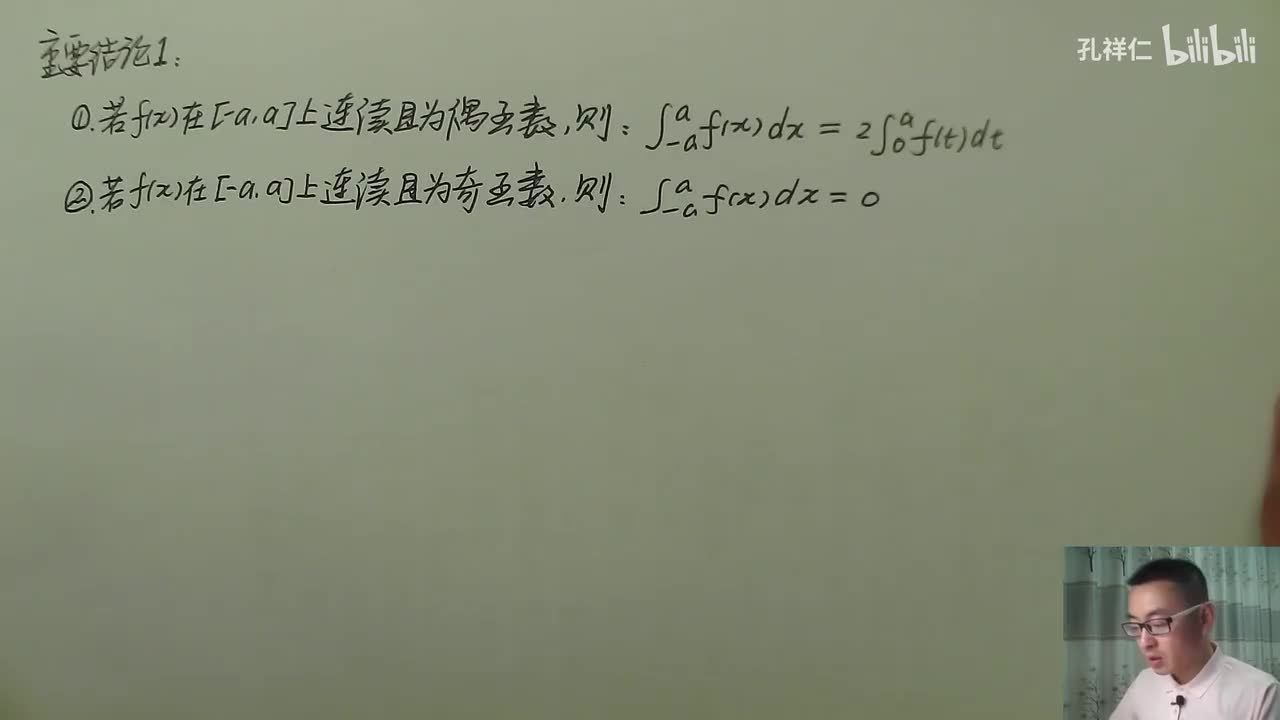 重要结论1:
孔祥仁 bilibili
①.若f(x)在[-a,a]上连续且为偶函数,则:∫_{-a}^{a}f(x)dx=2∫_{0}^{a}f(t)dt
②.若f(x)在[-a,a]上连续且为奇函数,则:∫_{-a}^{a}f(x)dx=0